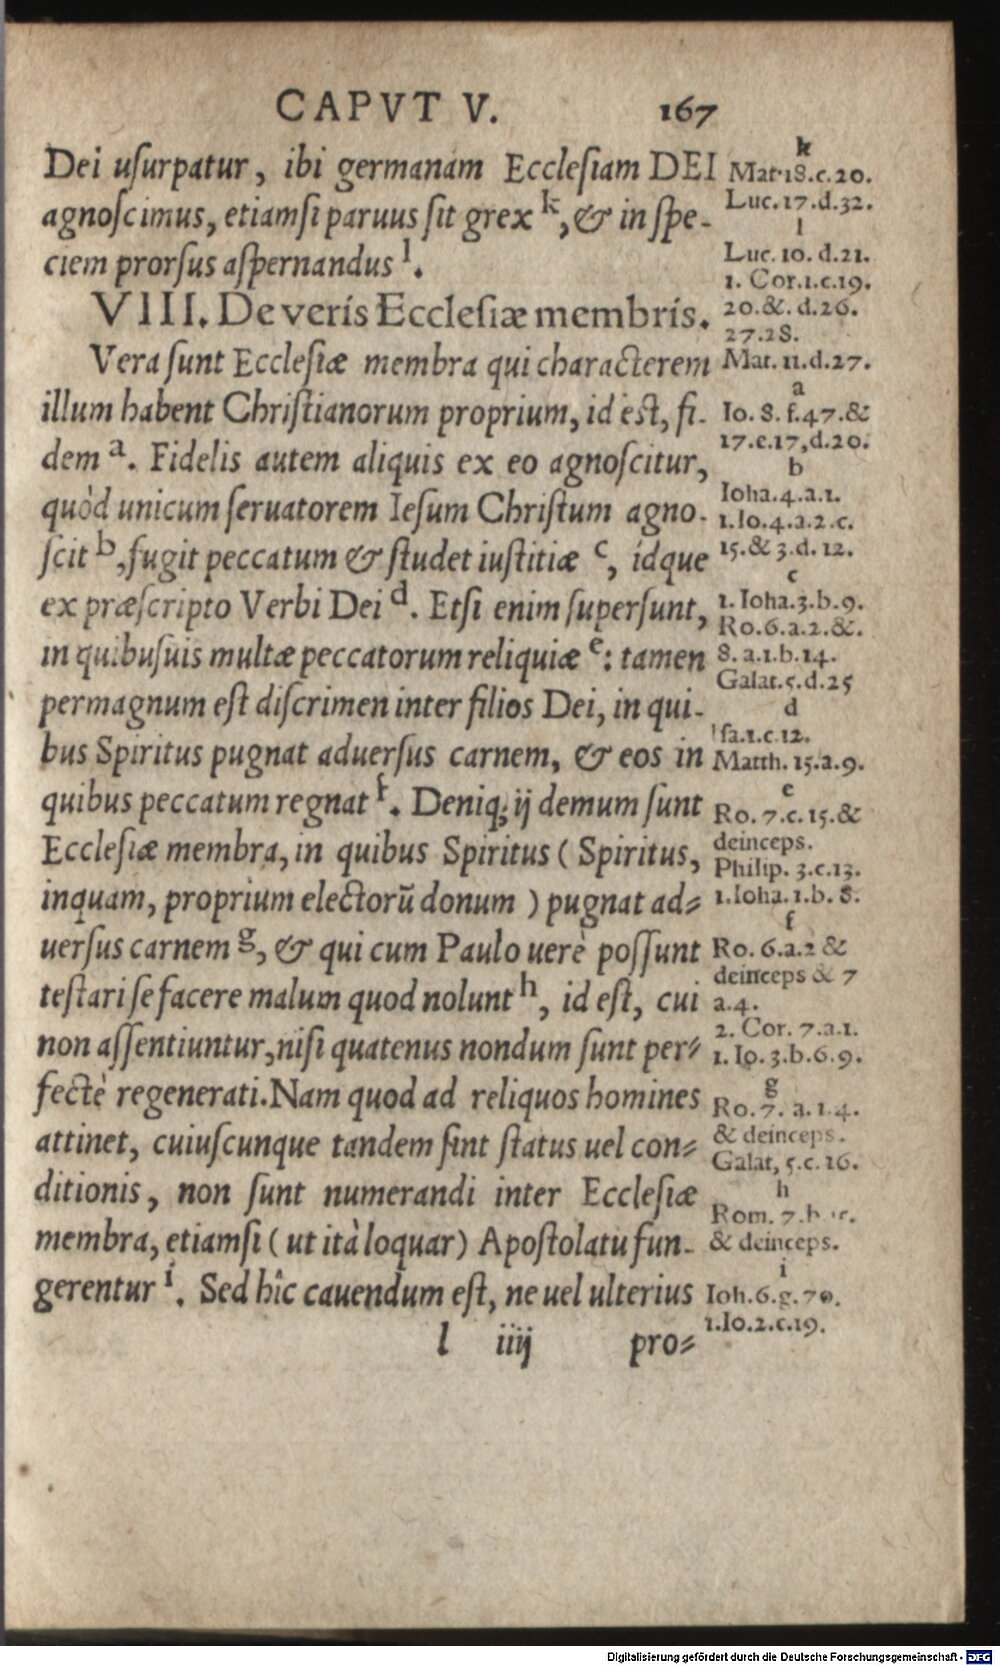 CAPVT V. 167
Dei uſurpatur, ibi germanam Eccleſiam DEI
agnoſcimus, etiamſi paruus ſit grex k, & in ſpe-
ciem prorſus aſpernandus l.
VIII. De verís Eccleſiæ membrís.
Vera ſunt Eccleſiæ membra qui characterem
illum habent Chriſtianorum proprium, id eſt, fi-
dem a. Fidelis autem aliquis ex eo agnoſcitur,
quòd unicum ſeruatorem Ieſum Chriſtum agno-
ſcit b, fugit peccatum & ſtudet iuſtitiæ c, idque
ex præſcripto Verbi Dei d. Etſi enim ſuperſunt,
in quibuſuis multæ peccatorum reliquiæ e: tamen
permagnum eſt diſcrimen inter filios Dei, in qui-
bus Spiritus pugnat aduerſus carnem, & eos in
quibus peccatum regnat f. Deniq; ij demum ſunt
Eccleſiæ membra, in quibus Spiritus (Spiritus,
inquam, proprium electorū donum) pugnat ad-
uerſus carnem g, & qui cum Paulo uerè poſſunt
teſtari ſe facere malum quod nolunt h, id eſt, cui
non aſſentiuntur, niſi quatenus nondum ſunt per-
fectè regenerati. Nam quod ad reliquos homines
attinet, cuiuſcunque tandem ſint ſtatus uel con-
ditionis, non ſunt numerandi inter Eccleſiæ
membra, etiamſi (ut ità loquar) Apoſtolatu fun-
gerentur i. Sed hîc cauendum eſt, ne uel ulterius
l iiij pro-
k
Mat.18.c.20.
Luc.17.d.32.
l
Luc. 10. d.21.
1. Cor.1.c.19.
20.&. d.26.
27.28.
Mat. 11.d.27.
a
Io. 8. f.47.&
17.c.17,d.20.
b
Ioha.4.a.1.
1.Io.4.a.2.c.
15.& 3.d.12.
c
1. Ioha.3.b.9.
Ro.6.a.2.&.
8.a.1.b.14.
Galat.5.d.25
d
Iſa.1.c.12.
Matth. 15.a.9.
e
Ro. 7.c.15.&
deinceps.
Philip. 3.c.13.
1.Ioha.1.b. 8.
f
Ro. 6.a.2 &
deinceps & 7
a.4.
2. Cor. 7.a.1.
1. Io. 3.b.6.9.
g
Ro. 7. a.1.4.
& deinceps.
Galat, 5.c.16.
h
Rom. 7.
& deinceps.
i
Ioh.6.g.70.
1.Io.2.c.19.
Digitalisierung gefördert durch die Deutsche Forschungsgemeinschaft - DFG